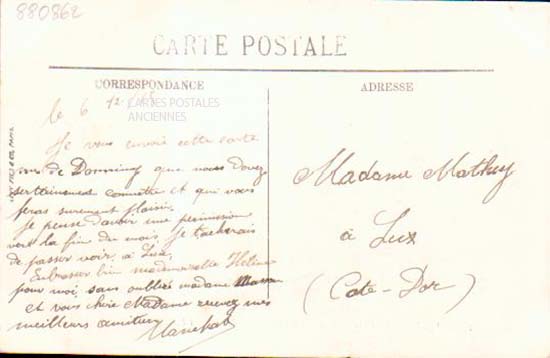 880862
CARTE POSTALE
CORRESPONDANCE
ADRESSE
le 6 12
CARTES POSTALES
ANCIENNES
Je vous envoie cette carte
de Donning que vous devez
serttainement connette et qui vous
feras surement plaisir
Je pense d'avoir une permission
vers la fin du mois, je tacherais
de passer voir, à Lux,
Embrasser bien mademoiselle Helene
pour moi, sans oublié madame
et vous chère Madame recevez mes
meilleurs amitiers
Madame Mathey
à Lux
(Cote-Dor)